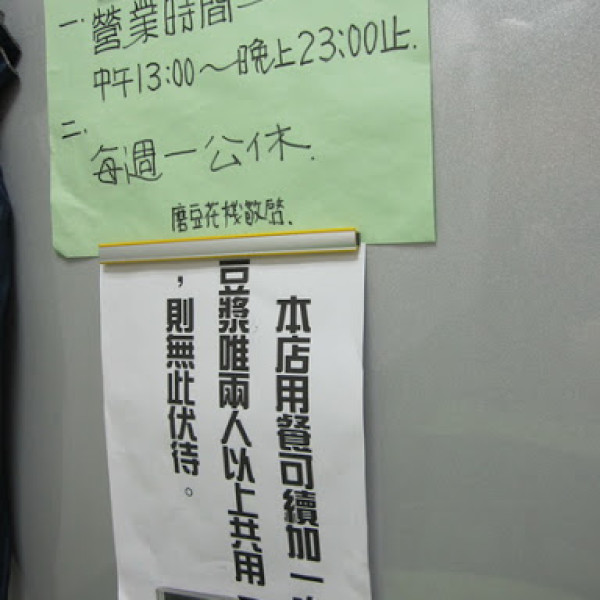 一. 營業時間
中午13:00～晚上23:00止.
二.
每週一公休.
磨豆花棧敬啓.
本店用餐可續加一
豆漿唯兩人以上共用
，則無此伏待。